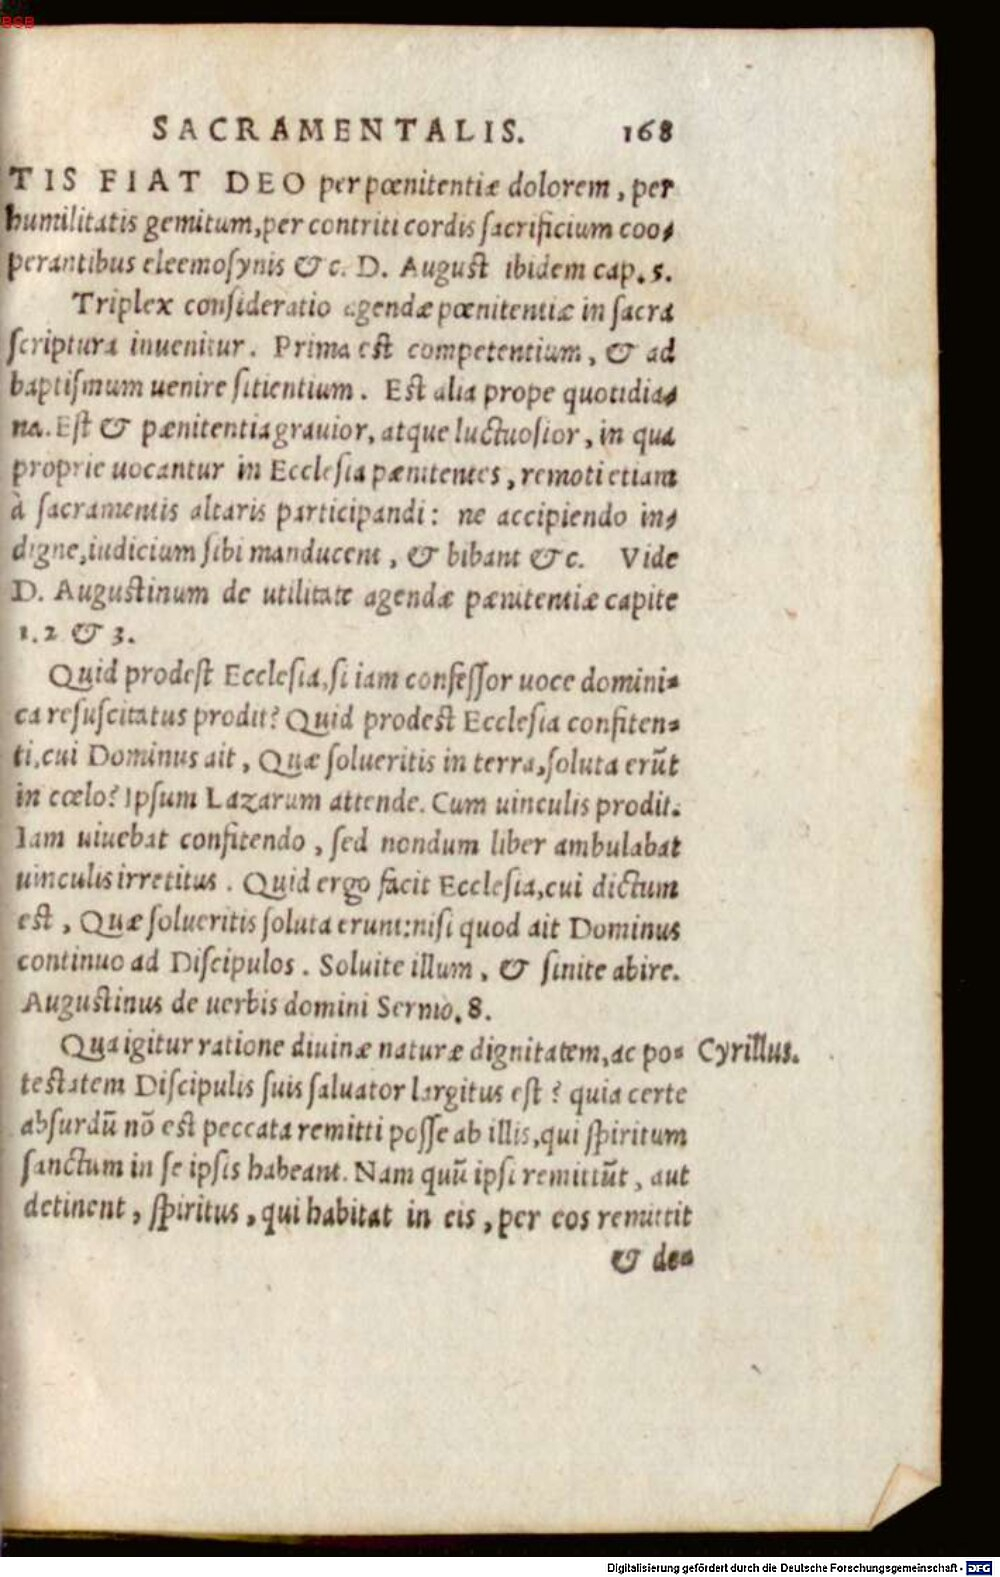 BSB
SACRAMENTALIS. 168
TIS FIAT DEO per pœnitentiæ dolorem, per
humilitatis gemitum, per contriti cordis ſacrificium coo-
perantibus eleemoſynis & c. D. Auguſt ibidem cap. 5.
Triplex conſideratio agendæ pœnitentiæ in ſacra
ſcriptura inuenitur. Prima eſt competentium, & ad
baptiſmum uenire ſitientium. Eſt alia prope quotidia-
na. Eſt & pænitentia grauior, atque luctuoſior, in qua
proprie uocantur in Eccleſia pænitentes, remoti etiam
à ſacramentis altaris participandi: ne accipiendo in-
digne, iudicium ſibi manducent, & bibant & c. Vide
D. Auguſtinum de utilitate agendæ pænitentiæ capite
1. 2 & 3.
Quid prodeſt Eccleſia, ſi iam confeſſor uoce domini-
ca reſuſcitatus prodit? Quid prodeſt Eccleſia confiten-
ti, cui Dominus ait, Quæ ſolueritis in terra, ſoluta erũt
in cœlo? Ipſum Lazarum attende. Cum uinculis prodit.
Iam uiuebat confitendo, ſed nondum liber ambulabat
uinculis irretitus. Quid ergo facit Eccleſia, cui dictum
eſt, Quæ ſolueritis ſoluta erunt: niſi quod ait Dominus
continuo ad Diſcipulos. Soluite illum, & ſinite abire.
Auguſtinus de uerbis domini Sermo. 8.
Qua igitur ratione diuinæ naturæ dignitatem, ac po- Cyrillus.
teſtatem Diſcipulis ſuis ſaluator largitus eſt? quia certe
abſurdũ nõ eſt peccata remitti poſſe ab illis, qui ſpiritum
ſanctum in ſe ipſis habeant. Nam quũ ipſi remittũt, aut
detinent, ſpiritus, qui habitat in eis, per eos remittit
& de-
Digitalisierung gefördert durch die Deutsche Forschungsgemeinschaft - DFG